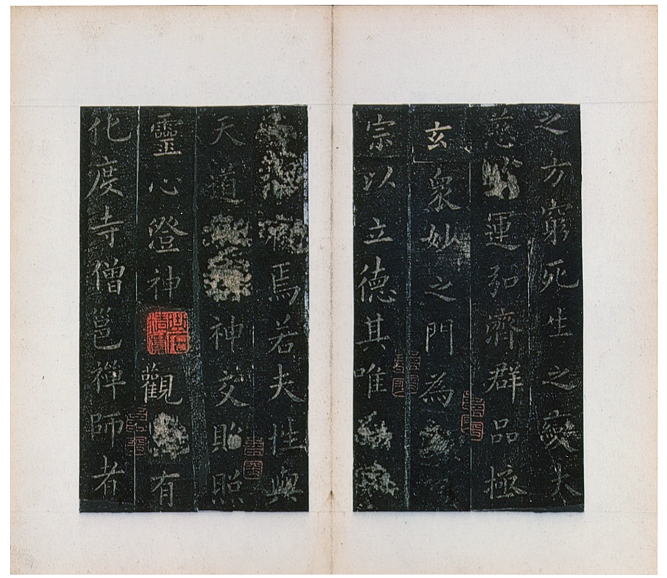 之方窮死生之變大
慈運弘濟群品極
玄衆妙之門為
宗以立德其唯
焉若夫性與
天道神交貽照
靈心澄神觀有
化度寺僧邕禪師者